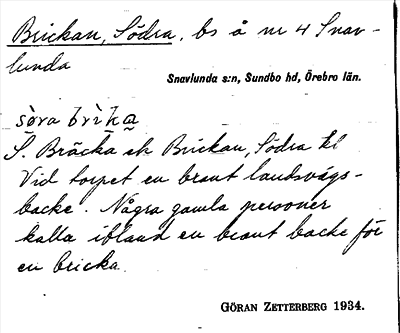 Brickan, Södra, bs å nr 4 Snav-
lunda
Snavlunda s:n, Sundbo hd, Örebro län.
sò̱ra brìka̱
S. Bräcka ek Brickan, Södra kl
Vid torpet en brant landsvägs-
backe. Några gamla personer
kalla ibland en brant backe för
en bricka.
GÖRAN ZETTERBERG 1934.